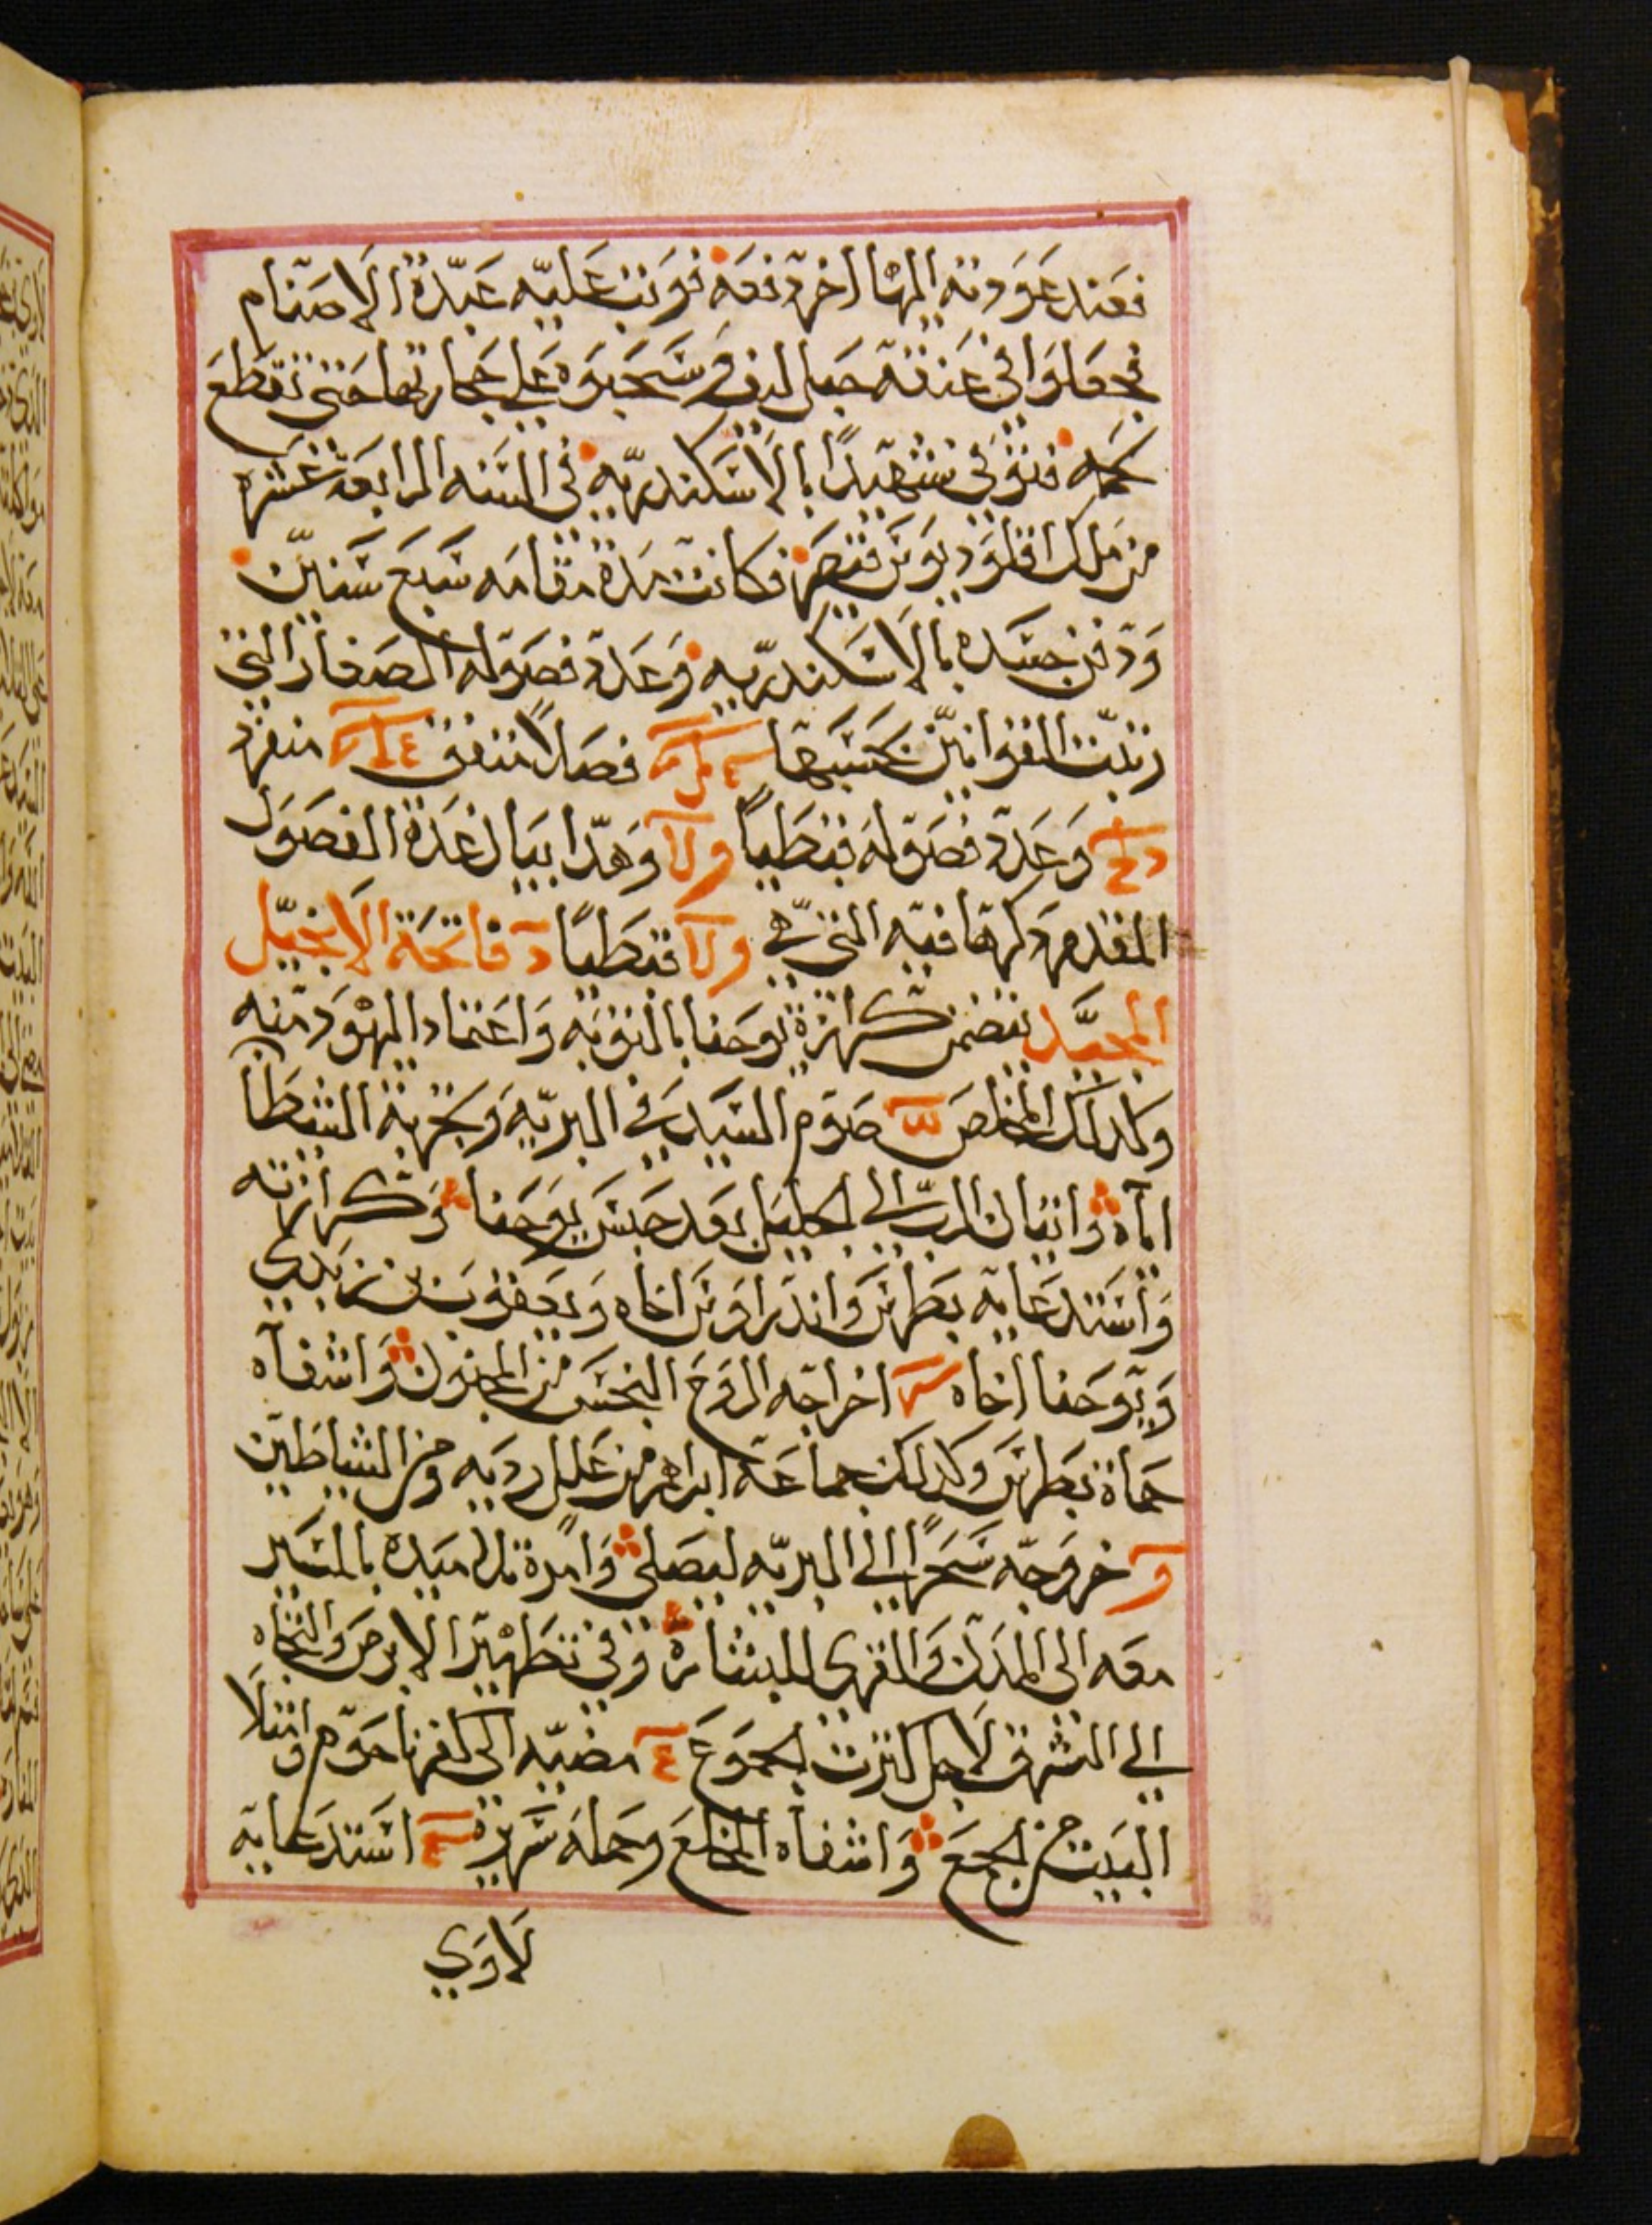 فعند عودته اليها اخر دفعه فوتب عليه عبدة الاصنام
فجعلوا في عنقه حبل ليف وسحبوه علي حجارتها حتي تقطع
لحمه فتوفي شهيدًا بالاسكندريه في السنه الرابعة عشره
من ملك اقلوديوس قيصر فكانت مدة مقامه سبع سنين
ودفن جسده بالاسكندريه وعدة فصوله الصغار التي
رتبت القوانين بحسبها فصلاً متفق منفرد
وعدة فصوله قبطياً وهدا بيان عدة الفصول
المقدم دكرها فيه التي هي قبطيًا فاتحة الانجيل
المجيد يتضمن كرازة يوحنا بالتوبه واعتماد اليهود منه
وكدلك المخلص صوم السيد في البريه وتجربة الشيطان
اياه واتيان الرب الي الجليل بعد حبس يوحنا وكرازته
واستدعايه بطرس واندراوس اخاه ويعقوب بن زبدي
ويوحنا اخاه اخراجه الروح النجس من المجنون واشفاه
حماة بطرس وكدلك جماعة ابراهم من علل رديه ومن الشياطين
خروجه سحرًا الي البريه ليصلي وامرة تلاميده بالمسير
معه الي المدن والقري للبشارة وفي تطهير الابرص والتجاه
الي الشرق لاجل كترت الجموع مضيه الي كفرناحوم وامتلا
البيت من الجمع واشفاه المخلع وحمله سريره استدعايه
لاوي